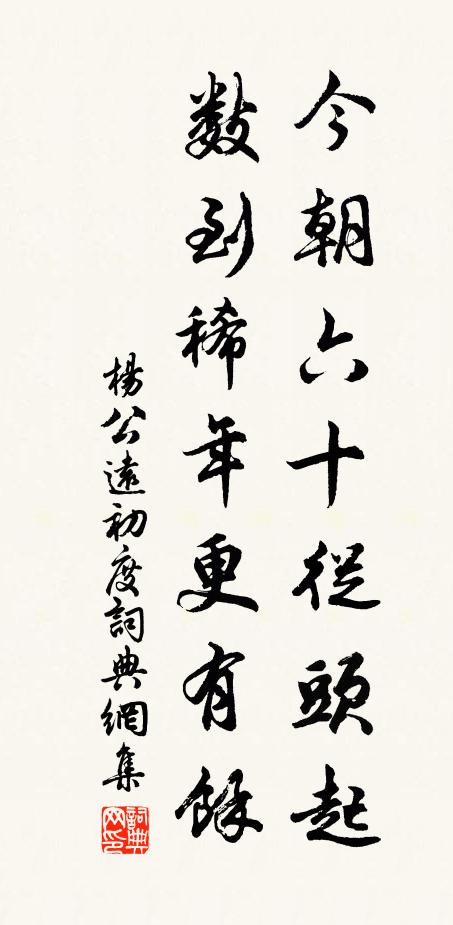 今朝六十從頭起
數到稀年更有餘
楊公遠初度詞典網集
詞典网印